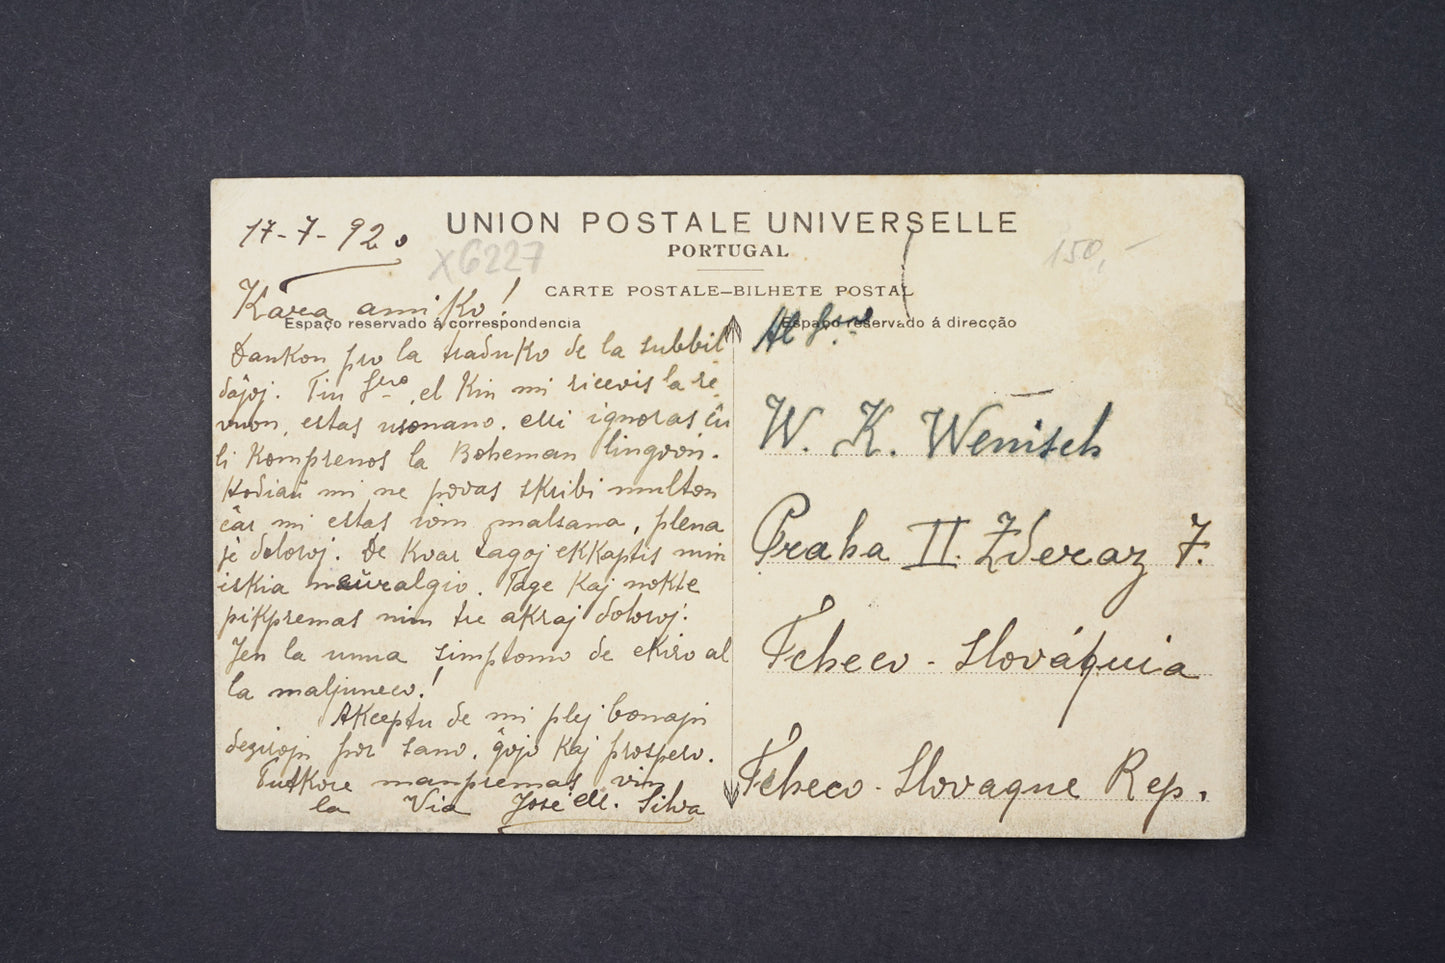 17-7-920
UNION POSTALE UNIVERSELLE
PORTUGAL
X6227
150,-
CARTE POSTALE–BILHETE POSTAL
Kara amiko!
Espaço reservado á correspondencia
Dankon pro la traduko de la subbil
dâjoj. Tiu Sro, el kiu mi ricevis la re
vuon, estas usonano. Mi ignoras ĉu
li komprenos la Boheman lingvon.
Hodiaŭ mi ne povas skribi multon
ĉar mi estas iom malsana, plena
je doloroj. De kvar tagoj ekkaptis min
iskia neŭralgio. Tage kaj nokte
pikpremas min tre akraj doloroj.
Jen la unua simptomo de ekiro al
la maljuneco!
Akceptu de mi plej bonajn
dezirojn por sano, ĝojo kaj prospero.
Tutkore manpremas vin
la Via José M. Silva
Espaço reservado á direcção
Al Sro
W. K. Wenisch
Praha II. Zderaz 7.
Tcheco-Slováquia
Tcheco-Slovaque Rep.